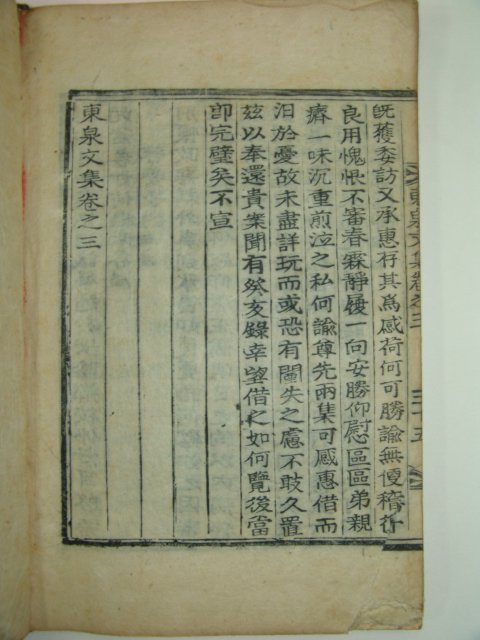 東泉文集卷之三 三十五
旣獲委訪又承惠存其爲感荷何可勝諭無便稽行
良用愧恨不審春霖靜履一向安勝仰慰區區弟親
癠一味沉重煎泣之私何諭尊先兩集可感惠借而
汨於憂故未盡詳玩而或恐有閪失之慮不敢久置
玆以奉還貴案聞有然友錄幸望借之如何覽後當
卽完璧矣不宣
東泉文集卷之三